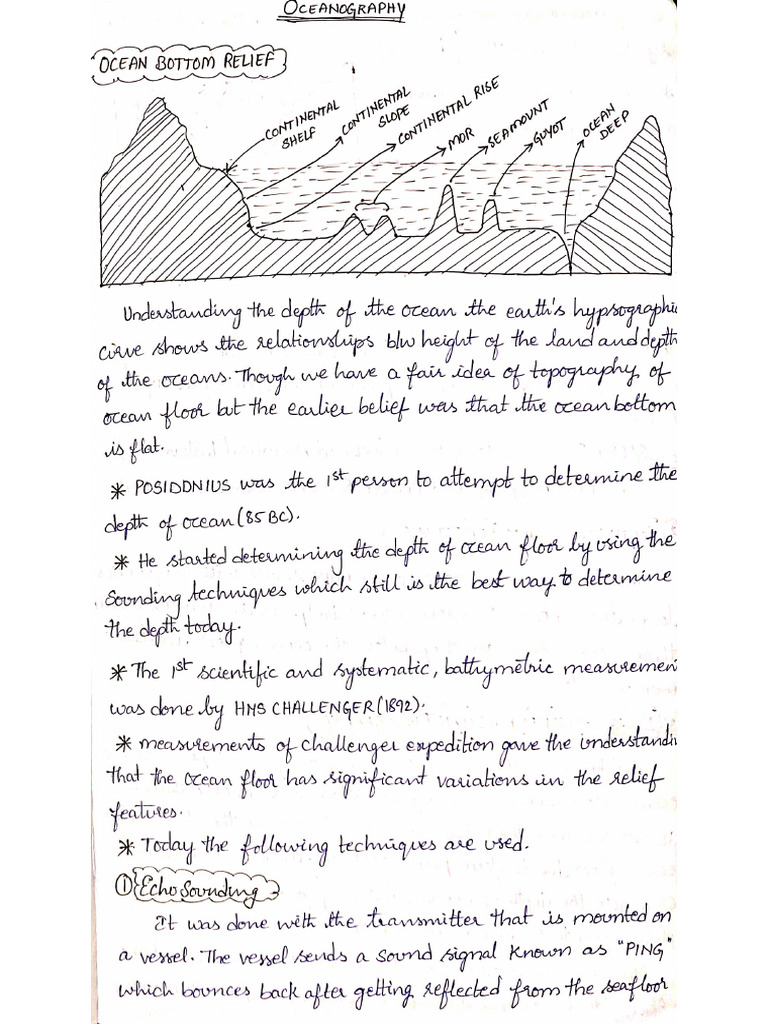 OCEANOGRAPHY
OCEAN BOTTOM RELIEF
CONTINENTAL
SHELF
CONTINENTAL
SLOPE
CONTINENTAL RISE
MOR
SEAMOUNT
GUYOT
OCEAN
DEEP
Understanding the depth of the ocean the earth's hypsographic
curve shows the relationships b/w height of the land and depth
of the oceans. Though we have a fair idea of topography of
ocean floor but the earlier belief was that the ocean bottom
is flat.
* POSIDONIUS was the 1st person to attempt to determine the
depth of ocean (85 BC).
* He started determining the depth of ocean floor by using the
Sounding techniques which still is the best way to determine
the depth today.
* The 1st scientific and systematic, bathymetric measuremen
was done by HMS CHALLENGER (1892).
* measurements of challenger expedition gave the understandi
that the ocean floor has significant variations in the relief
features.
* Today the following techniques are used.
① Echo Sounding
It was done with the transmitter that is mounted on
a vessel. The vessel sends a sound signal known as "PING"
which bounces back after getting reflected from the seafloor